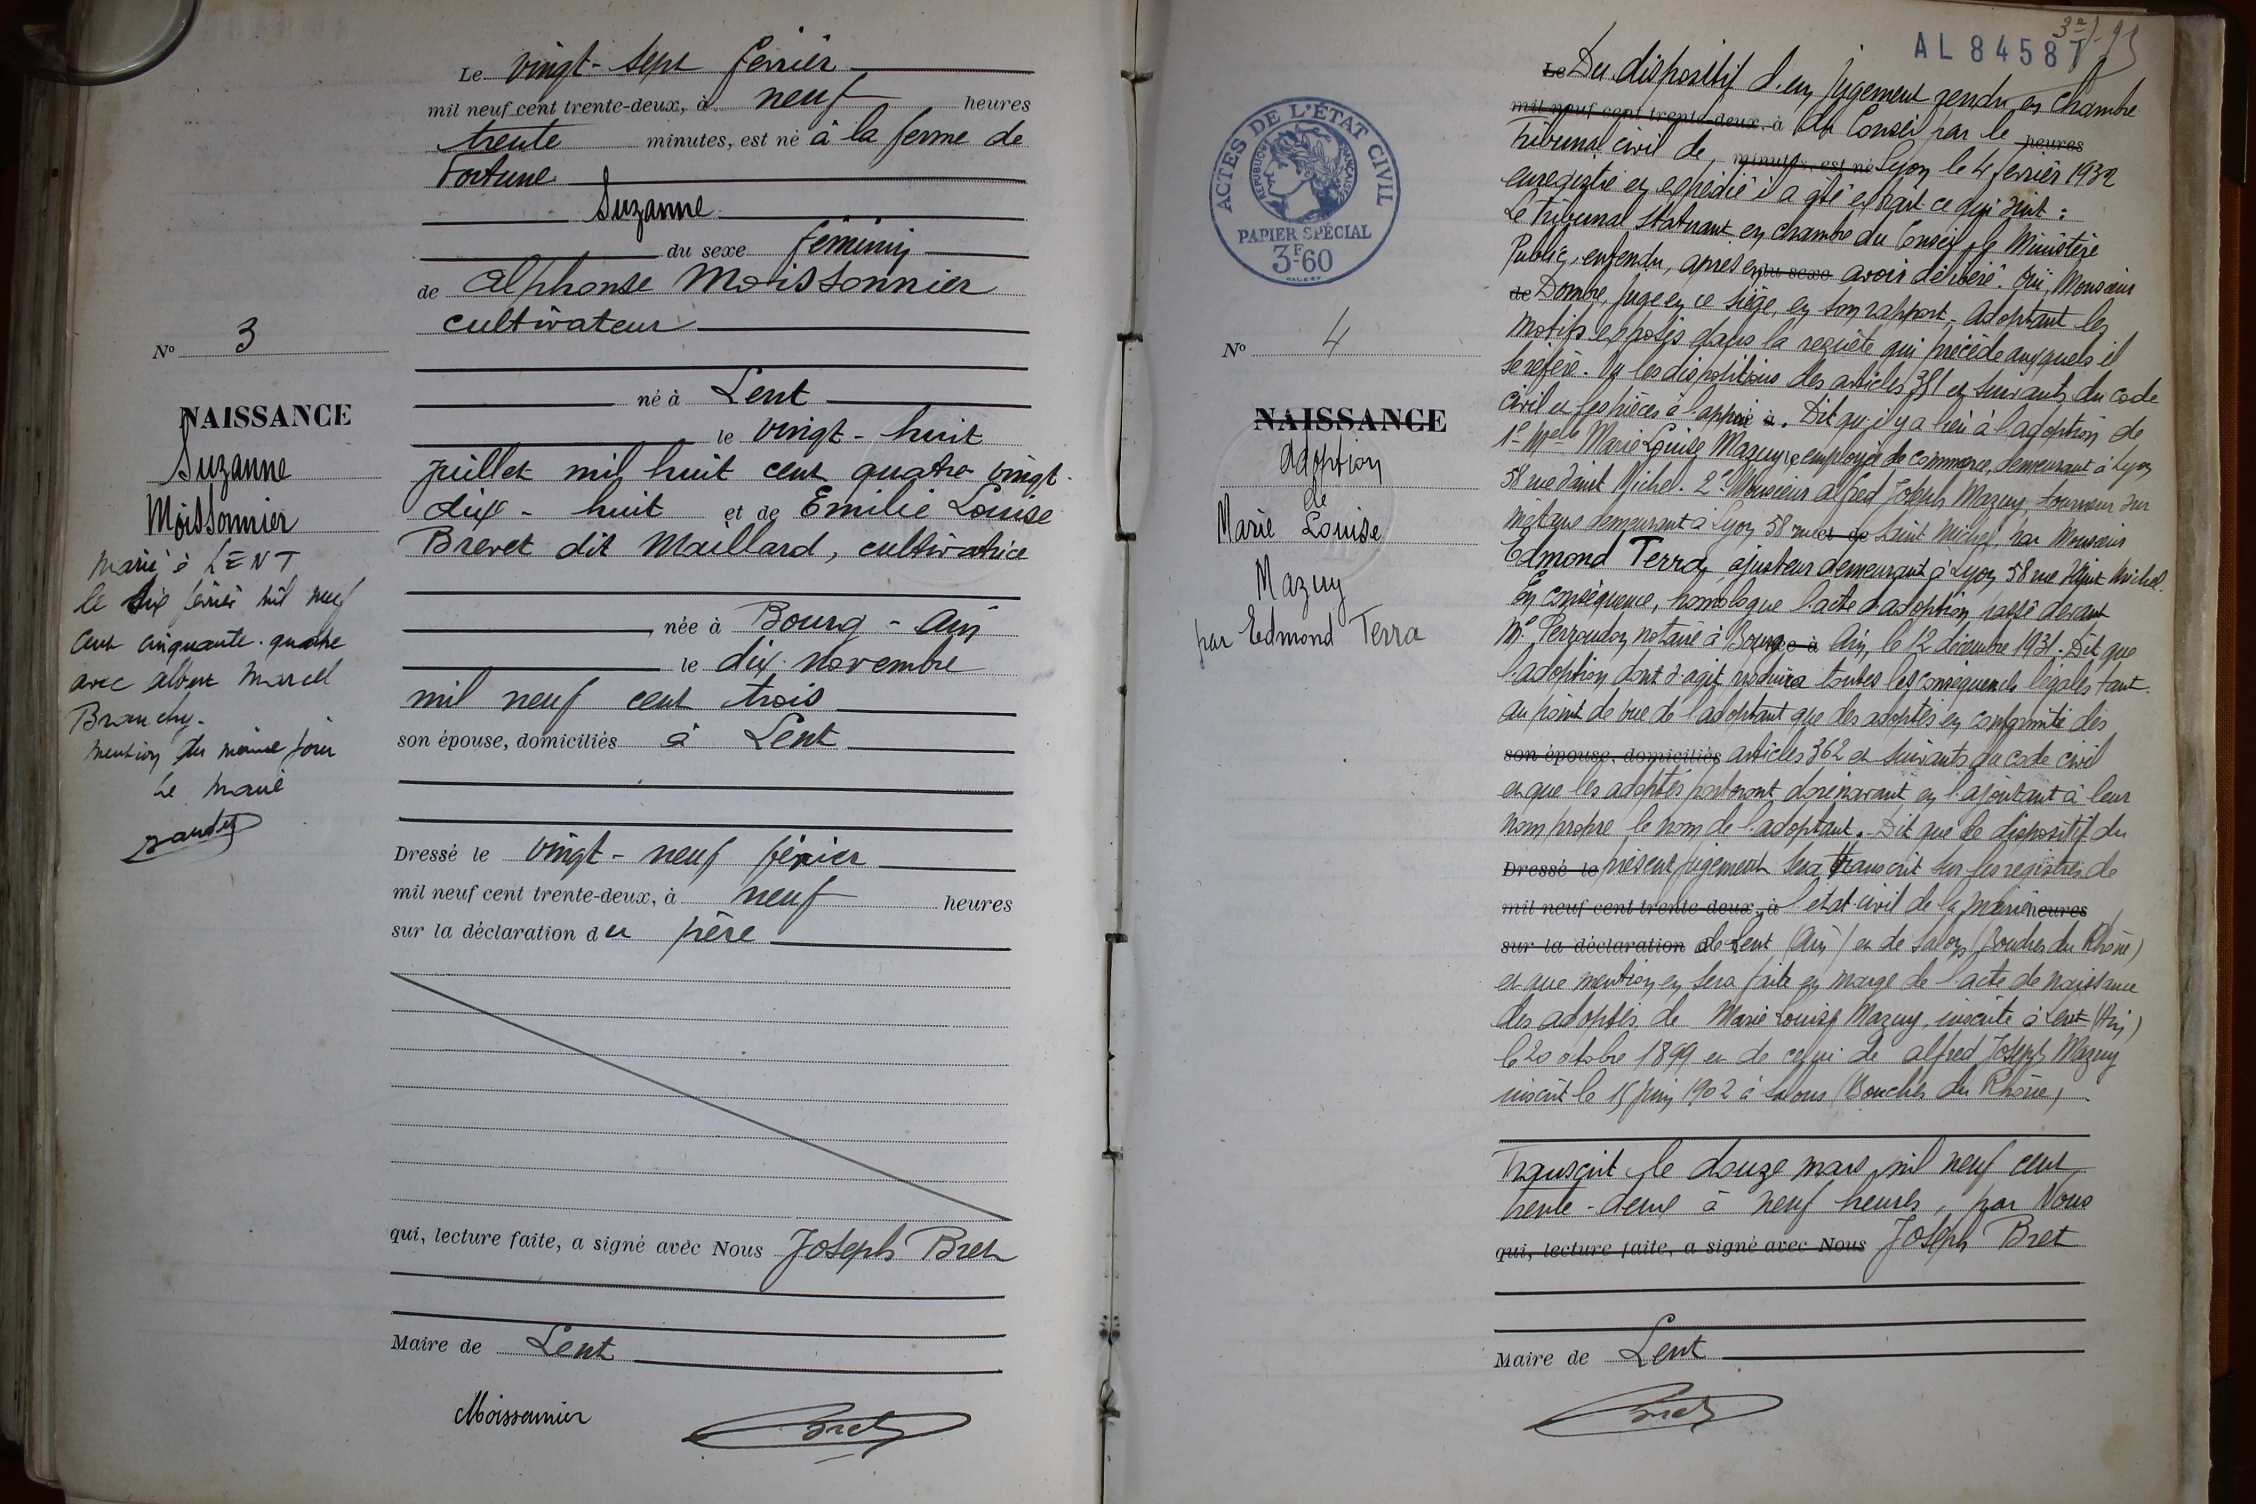 Le vingt-sept février
mil neuf cent trente-deux, à neuf heures
trente minutes, est né à la ferme de
Fortune
Suzanne
du sexe féminin
de Alphonse Moissonnier
cultivateur
né à Lent
le vingt-huit
juillet mil huit cent quatre vingt
dix-huit et de Emilie Louise
Brevet dit Maillard, cultivatrice
née à Bourg - Ain
le dix novembre
mil neuf cent trois
son épouse, domiciliés à Lent
Dressé le vingt-neuf février
mil neuf cent trente-deux, à neuf heures
sur la déclaration du père
qui, lecture faite, a signé avec Nous Joseph Bret
Maire de Lent
Moissonnier
Bret
No 3
NAISSANCE
Suzanne
Moissonnier
Marié à LENT
le six février mil neuf
cent cinquante-quatre
avec Albert Marcel
Branchy.
Mention du même jour
Le Maire
AL 84587
ACTES DE L'ÉTAT CIVIL
RÉPUBLIQUE FRANÇAISE
PAPIER SPÉCIAL
3F-60
No 4
NAISSANCE
Adoption
de
Marie Louise
Mazuy
par Edmond Terra
Le Du dispositif d'un jugement rendu en chambre
mil neuf cent trente-deux, à du Conseil par le heures
Tribunal civil de, minutes, est né Lyon le 4 février 1932
enregistré et expédié il a été extrait ce qui suit :
Le Tribunal statuant en chambre du Conseil, le Ministère
Public, entendu, après en du sexe avoir délibéré. Ouï, Monsieur
de Dombre, juge en ce siège, en son rapport, Adoptant les
motifs exposés dans la requête qui précède auxquels il
se réfère. Vu les dispositions des articles 351 et suivants du code
civil et les pièces à l'appui à. Dit qu'il y a lieu à l'adoption de
1° Melle Marie Louise Mazuy, employée de commerce, demeurant à Lyon
58 rue Saint Michel. 2° Monsieur Alfred Joseph Mazuy, tourneur sur
métaux demeurant à Lyon 58 rue et de Saint Michel, par Monsieur
Edmond Terra, ajusteur demeurant à Lyon 58 rue Saint Michel.
En conséquence, homologue l'acte d'adoption passé devant
Me Perroudon notaire à Bourg née à Ain, le 12 décembre 1931. Dit que
l'adoption dont s'agit produira toutes les conséquences légales tant
au point de vue de l'adoptant que des adoptés en conformité des
son épouse, domiciliés articles 362 et suivants du code civil
et que les adoptés porteront dorénavant en l'ajoutant à leur
nom propre le nom de l'adoptant. Dit que le dispositif du
Dressé le présent jugement sera transcrit sur les registres de
mil neuf cent trente-deux, à l'état civil de la mairie heures
sur la déclaration d de Lent (Ain) et de Salon (Bouches du Rhône)
et que mention en sera faite en marge de l'acte de naissance
des adoptés de Marie Louise Mazuy, inscrite à Lent (Ain)
le 20 octobre 1899 et de celui de Alfred Joseph Mazuy
inscrit le 15 juin 1902 à Salons (Bouches du Rhône)
Transcrit le douze mars mil neuf cent
trente-deux à neuf heures, par Nous
qui, lecture faite, a signé avec Nous Joseph Bret
Maire de Lent
Bret